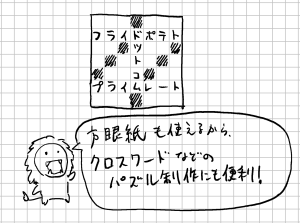 フライドポテト
ッ
ト
コ
プライムレート
方眼紙も使えるから、
クロスワードなどの
パズル制作にも便利!